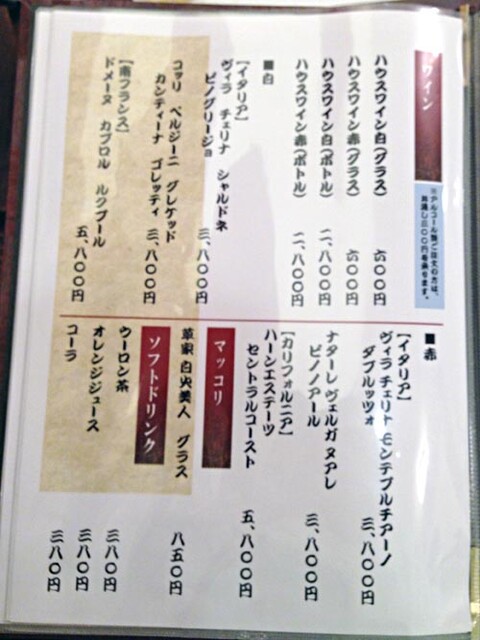 ワイン
※アルコール類ご注文の方は、
お通し三〇〇円を承ります。
ハウスワイン白（グラス） 六〇〇円
ハウスワイン赤（グラス） 六〇〇円
ハウスワイン白（ボトル） 二、八〇〇円
ハウスワイン赤（ボトル） 二、八〇〇円
■白
【イタリア】
ヴィラ チェリナ シャルドネ
ピノグリージョ 三、八〇〇円
コッリ ベルジーニ グレケット
カンティーナ ゴレッティ 三、八〇〇円
【南フランス】
ドメーヌ カブロル ルクプール 五、八〇〇円
■赤
【イタリア】
ヴィラ チェリナ モンテプルチアーノ
ダブルッツォ 三、八〇〇円
ナターレ ヴェルガ ヌアレ
ピノノアール 三、八〇〇円
【カリフォルニア】
ハーンエステーツ
セントラルコースト 五、八〇〇円
マッコリ
草家 白央美人 グラス 八五〇円
ソフトドリンク
ウーロン茶 三八〇円
オレンジジュース 三八〇円
コーラ 三八〇円